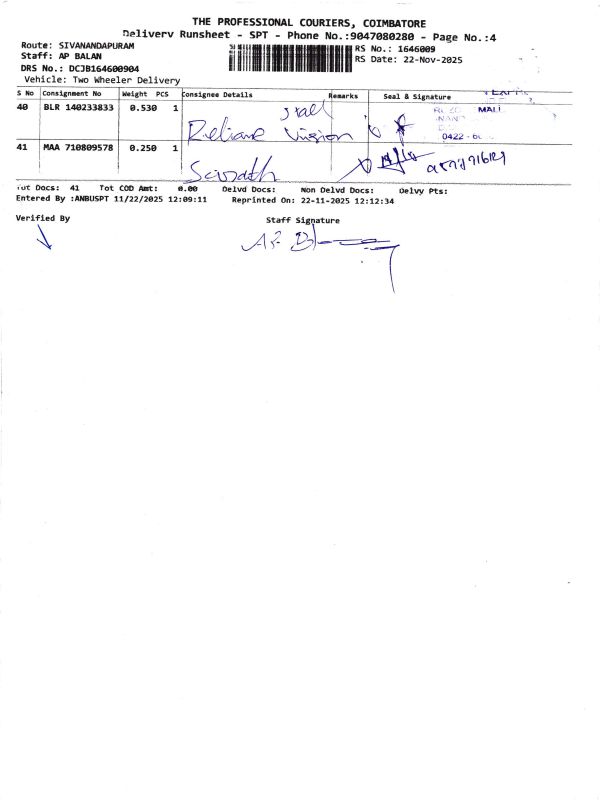 THE PROFESSIONAL COURIERS, COIMBATORE
Delivery Runsheet - SPT - Phone No.:9047080280 - Page No.:4
Route: SIVANANDAPURAM
Staff: AP BALAN
DRS No.: DCJB164600904
Vehicle: Two Wheeler Delivery
RS No.: 1646009
RS Date: 22-Nov-2025
S No Consignment No Weight PCS Consignee Details Remarks Seal & Signature
40 BLR 140233833 0.530 1
Reliance Vision
MALL
0422 - 6
41 MAA 710809578 0.250 1
Tot Docs: 41 Tot COD Amt: 0.00 Delvd Docs: Non Delvd Docs: Delvy Pts:
Entered By :ANBUSPT 11/22/2025 12:09:11 Reprinted On: 22-11-2025 12:12:34
Verified By Staff Signature